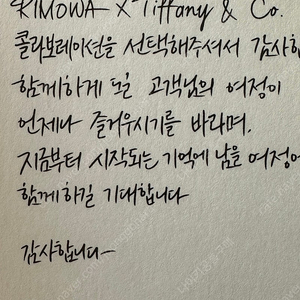 RIMOWA X Tiffany & Co.
콜라보레이션을 선택해주셔서 감사합
함께하게 될 고객님의 여정이
언제나 즐거우시기를 바라며,
지금부터 시작되는 기억에 남을 여정에
함께하길 기대합니다
감사합니다~